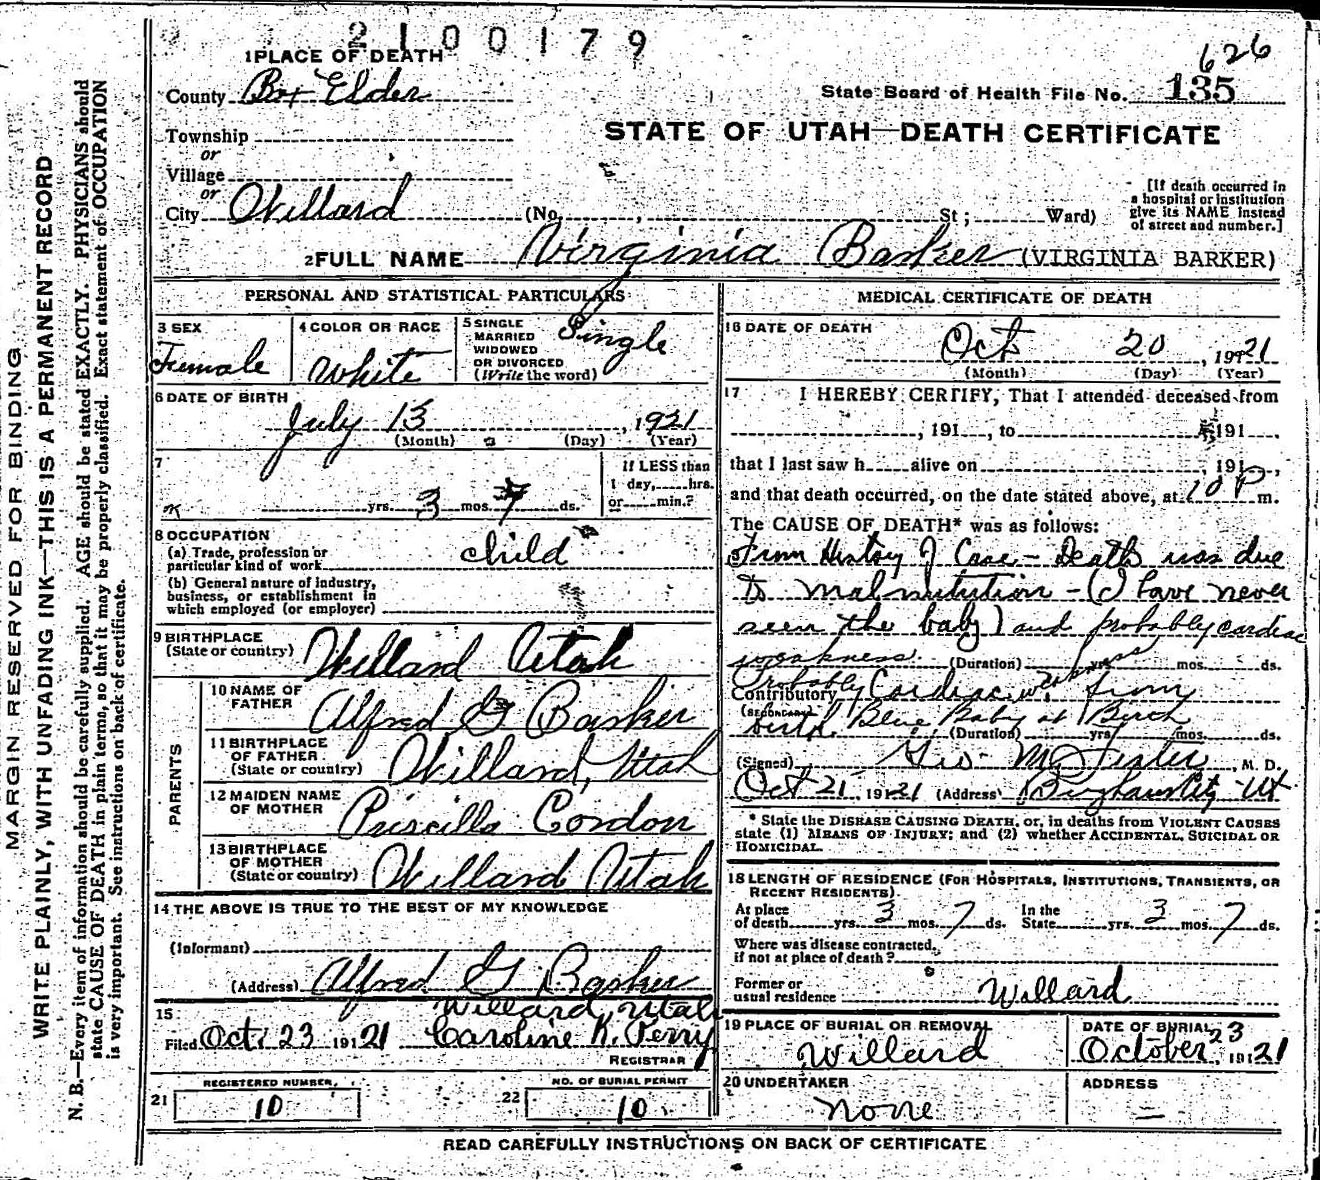 2100179
626
1 PLACE OF DEATH
County Box Elder
State Board of Health File No. 135
Township
or
Village
or
City Willard
STATE OF UTAH—DEATH CERTIFICATE
(No. , St ; Ward)
[If death occurred in
a hospital or institution
give its NAME instead
of street and number.]
2 FULL NAME Virginia Barker (VIRGINIA BARKER)
PERSONAL AND STATISTICAL PARTICULARS
3 SEX
Female
4 COLOR OR RACE
White
5 SINGLE
MARRIED
WIDOWED
OR DIVORCED
(Write the word)
Single
6 DATE OF BIRTH
July 13 , 1921
(Month) (Day) (Year)
7
yrs. 3 mos. 7 ds.
If LESS than
1 day, hrs.
or min.?
8 OCCUPATION
(a) Trade, profession or
particular kind of work child
(b) General nature of industry,
business, or establishment in
which employed (or employer)
9 BIRTHPLACE
(State or country) Willard Utah
PARENTS
10 NAME OF
FATHER Alfred G Barker
11 BIRTHPLACE
OF FATHER
(State or country) Willard, Utah
12 MAIDEN NAME
OF MOTHER Priscilla Cordon
13 BIRTHPLACE
OF MOTHER
(State or country) Willard Utah
14 THE ABOVE IS TRUE TO THE BEST OF MY KNOWLEDGE
(Informant)
(Address) Alfred G Barker
Willard, Utah
15
Filed Oct. 23 1921 Caroline N. Perry
REGISTRAR
21 REGISTERED NUMBER.
10
22 NO. OF BURIAL PERMIT
10
MEDICAL CERTIFICATE OF DEATH
16 DATE OF DEATH
Oct 20 , 1921
(Month) (Day) (Year)
17 I HEREBY CERTIFY, That I attended deceased from
, 191 , to 191 ,
that I last saw h alive on , 191 ,
and that death occurred, on the date stated above, at 10 P m.
The CAUSE OF DEATH* was as follows:
From History of Case - Death was due
to Malnutrition - (I have never
seen the baby) and probably cardiac
weakness (Duration) yrs. mos. ds.
Contributory Probably Cardiac weakness from
(SECONDARY) birth. Blue Baby at Birth
(Duration) yrs. mos. ds.
(Signed) M. D.
Oct 21, 1921 (Address) Brigham City Ut
* State the DISEASE CAUSING DEATH, or, in deaths from VIOLENT CAUSES
state (1) MEANS OF INJURY; and (2) whether ACCIDENTAL, SUICIDAL OR
HOMICIDAL.
18 LENGTH OF RESIDENCE (FOR HOSPITALS, INSTITUTIONS, TRANSIENTS, OR
RECENT RESIDENTS).
At place
of death yrs. 3 mos. 7 ds. In the
State yrs. 3 mos. 7 ds.
Where was disease contracted,
if not at place of death?
Former or
usual residence Willard
19 PLACE OF BURIAL OR REMOVAL
Willard
DATE OF BURIAL
October 23, 1921
20 UNDERTAKER
none
ADDRESS
—
READ CAREFULLY INSTRUCTIONS ON BACK OF CERTIFICATE
MARGIN RESERVED FOR BINDING
WRITE PLAINLY, WITH UNFADING INK—THIS IS A PERMANENT RECORD
N. B.—Every item of information should be carefully supplied. AGE should be stated EXACTLY. PHYSICIANS should
state CAUSE OF DEATH in plain terms, so that it may be properly classified. Exact statement of OCCUPATION
is very important. See instructions on back of certificate.